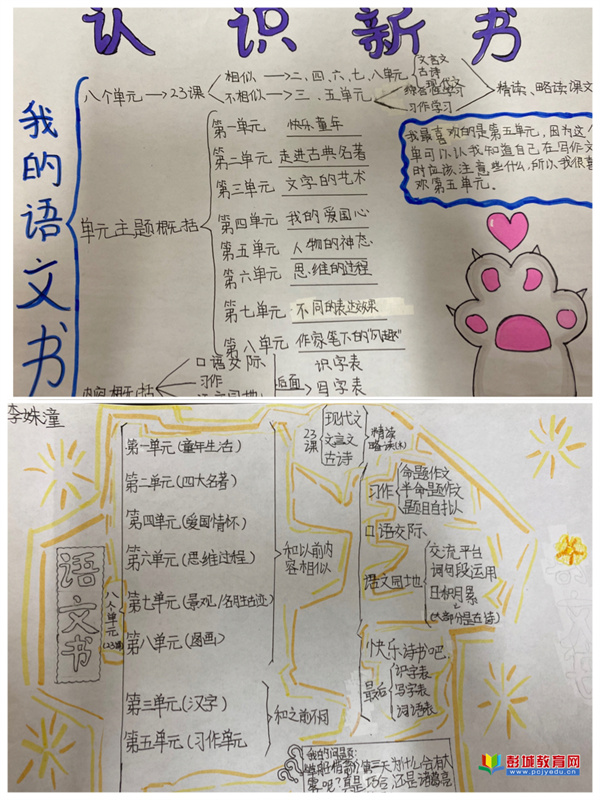 认识新书
我的语文书
八个单元→23课
相似→二、四、六、七、八单元
不相似→三、五单元
文言文
古诗
现代文
习作学习
精读、略读课文
我最喜欢的是第五单元，因为这个
单可以认我知道自己在写作文
时应该注意些什么，所以我很喜
欢第五单元。
单元主题概括
第一单元 快乐童年
第二单元 走进古典名著
第三单元 文字的艺术
第四单元 我的爱国心
第五单元 人物的神态
第六单元 思维的过程
第七单元 不同的表达效果
第八单元 作家笔下的"风趣"
内容概括
口语交际
习作
语文园地
后面
识字表
写字表
李姝潼
语文书
八个单元
(23课)
第一单元(童年生活)
第二单元(四大名著)
第四单元(爱国情怀)
第六单元(思维过程)
第七单元(景观/名胜古迹)
第八单元(图画)
和以前内
容相似
第三单元(汉字)
第五单元(习作单元
和之前不同
23课
现代文
文言文
古诗
精读
略读(*)
习作
命题作文
半命题作文
题目自拟
口语交际、
语文园地
交流平台
词句段运用
日积月累
(大部分是古诗)
快乐读书吧、
最后
识字表
写字表
词语表
我的问题:
草船借箭》第三天为什么会有大
雾呢?真是巧合还是诸葛亮
彭城教育网
www.pcjyedu.cn